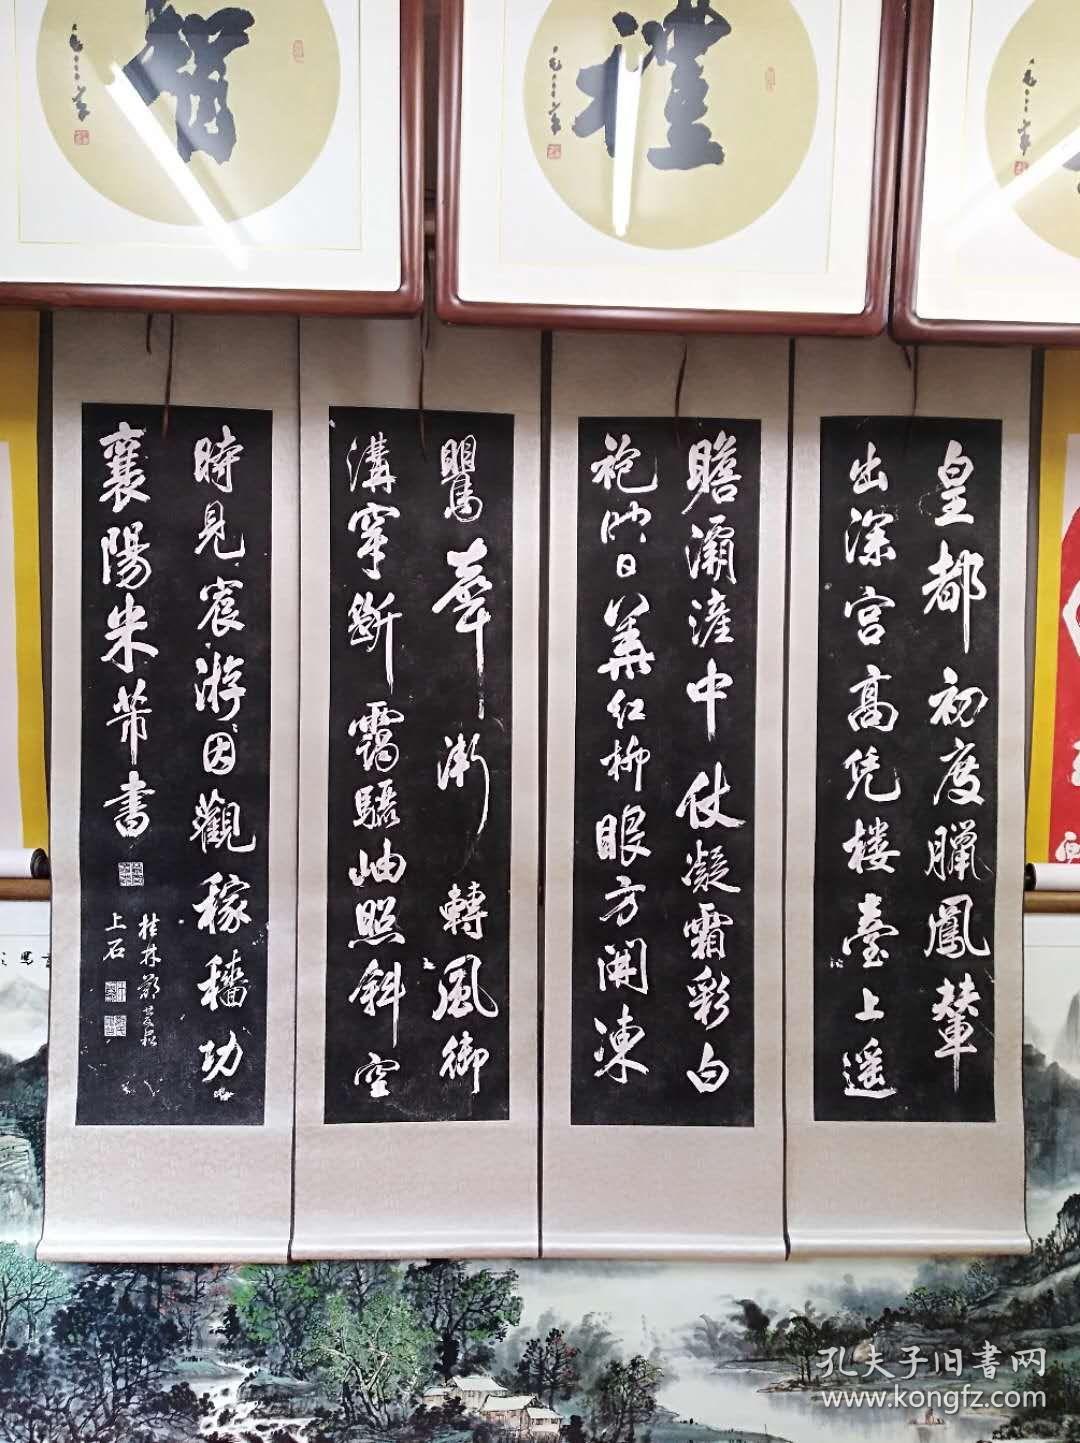 智
禮
皇都初度臘鳳輦
出深宮高凭樓臺上遥
瞻灞滻中仗凝霜彩白
袍映日華紅柳眼方開凍
鸎聲漸轉風御
溝穿斷靄驪岫照斜空
時見宸游因觀稼穡功
襄陽米芾書
桂林
上石
孔夫子旧書网
www.kongfz.com